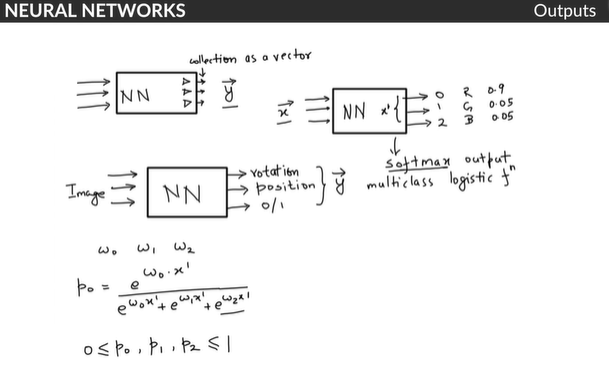 NEURAL NETWORKS
Outputs
collection as a vector
NN
y⃗
x⃗
NN x' {
0 R 0.9
1 G 0.05
2 B 0.05
softmax output
multiclass logistic fⁿ
Image
NN
rotation
position
0/1
} y⃗
ω₀ ω₁ ω₂
p₀ = e^(ω₀·x') / (e^(ω₀x') + e^(ω₁x') + e^(ω₂x'))
0 ≤ p₀, p₁, p₂ ≤ 1